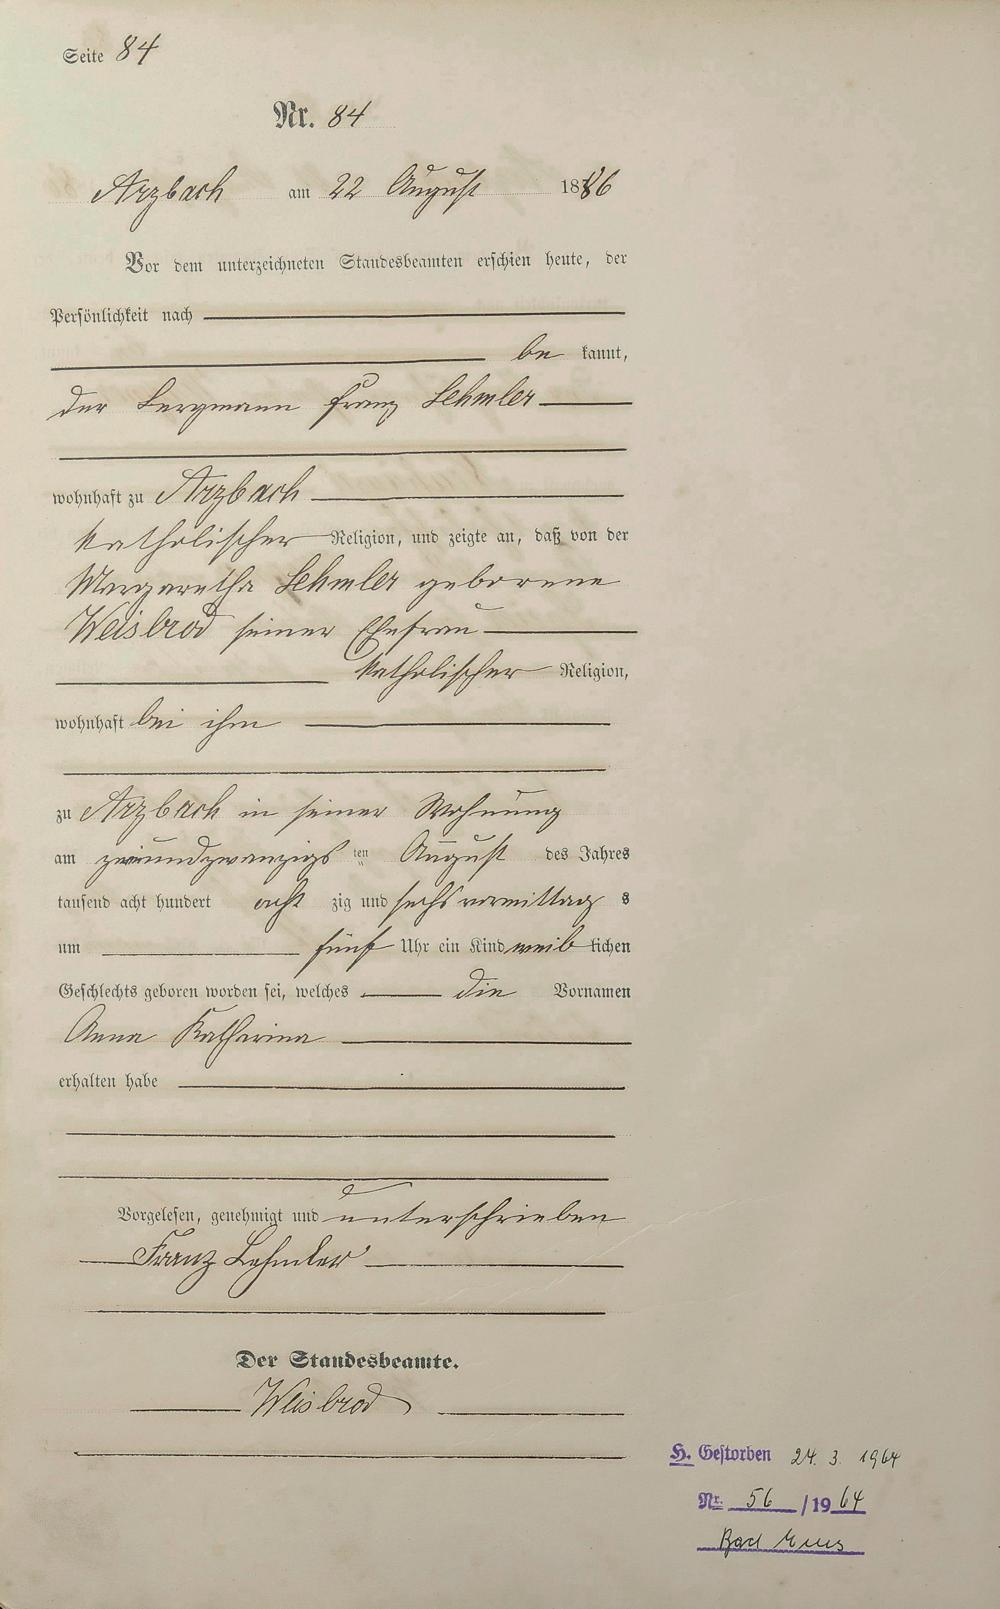 Seite 84
Nr. 84
Arzbach am 22 August 1886
Vor dem unterzeichneten Standesbeamten erschien heute, der
Persönlichkeit nach
be kannt,
der Bergmann Franz Lehmler
wohnhaft zu Arzbach
katholischer Religion, und zeigte an, daß von der
Margaretha Lehmler geborene
Weisbrod seiner Ehefrau
katholischer Religion,
wohnhaft bei ihm
zu Arzbach in seiner Wohnung
am zweiundzwanzigs ten August des Jahres
tausend acht hundert acht zig und sechs vormittag s
um fünf Uhr ein Kind weib lichen
Geschlechts geboren worden sei, welches die Vornamen
Anna Katharina
erhalten habe
Vorgelesen, genehmigt und unterschrieben
Franz Lehmler
Der Standesbeamte.
Weisbrod
H. Gestorben 24. 3. 1964
Nr. 56 / 1964
Bad Ems